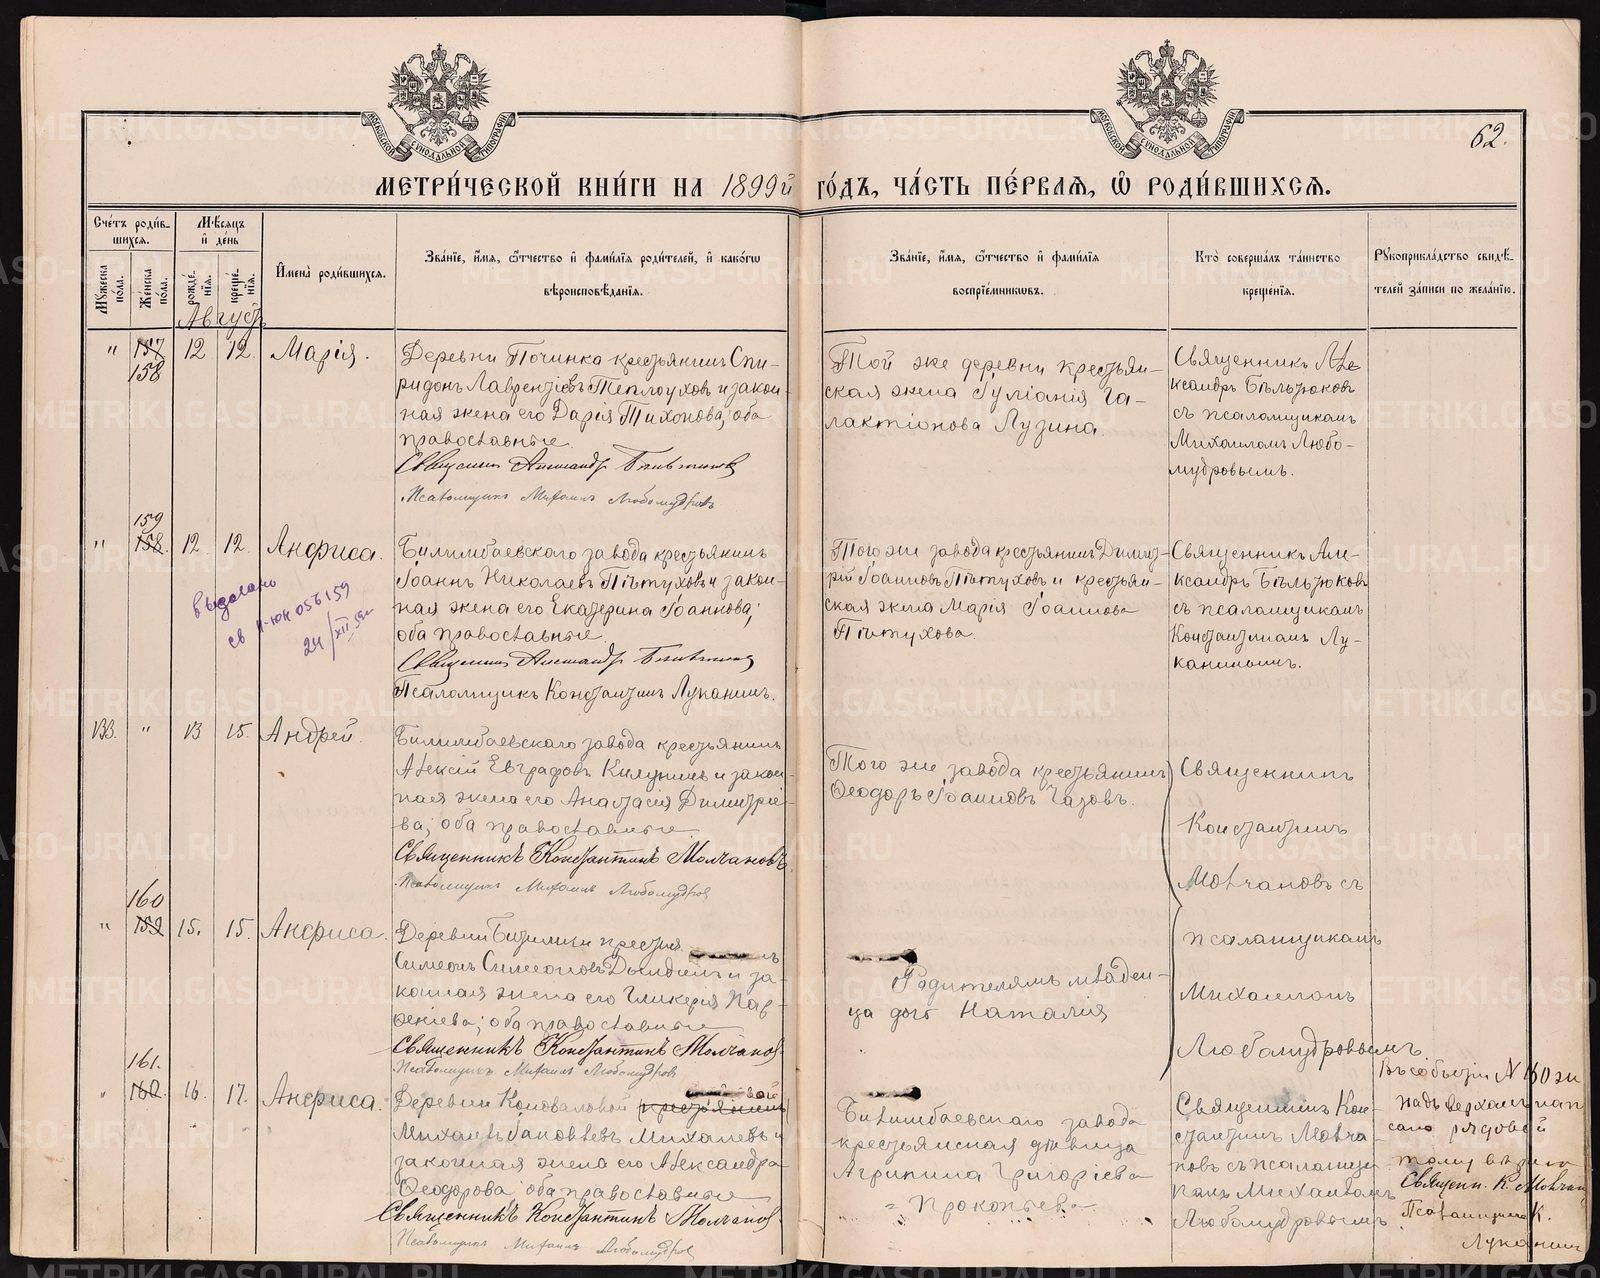 62.
МЕТРИ́ЧЕСКОЙ КНИ́ГИ НА 1899й ГО́ДЪ, ЧА́СТЬ ПЕ́РВАЯ, Ѡ РОДИ́ВШИХСЯ.
Сче́тъ роди́в-
шихся.
Мѣ́сяцъ
и день
Му́жеска по́ла.
Же́нска по́ла.
рожде́нїя.
креще́нїя.
И҆мена̀ роди́вшихся.
Зва́нїе, и҆́мя, ѻ҆́тчество и҆ фами́лїя роди́телей, и҆ како́гѡ
вѣроисповѣ́данїя.
Зва́нїе, и҆́мя, ѻ҆́тчество и҆ фами́лїя
воспрїе́мникѡвъ.
Кто̀ соверша́лъ та́инство
креще́нїя.
Рꙋкоприкла́дство свидѣ́-
телей за́писи по жела́нїю.
Августъ
" 157 12 12. Марія.
158
Деревни Починка крестьянинъ Спи-
ридонъ Лаврентіевъ Теплоуховъ и закон-
ная жена его Дарія Тихонова; оба
православные.
Священникъ Александръ Бѣльтюковъ
Псаломщикъ Михаилъ Любомудровъ
Той же деревни крестьян-
ская жена Іуліанія Га-
лактіонова Лузина.
Священникъ Але-
ксандръ Бѣльтюковъ
съ псаломщикомъ
Михаиломъ Любо-
мудровымъ.
159
" 158. 12. 12. Анфиса.
выдано
св II-ЮК 056159
24/XII 59г
Билимбаевскаго завода крестьянинъ
Іоаннъ Николаевъ Пѣтуховъ и закон-
ная жена его Екатерина Іоаннова;
оба православные.
Священникъ Александръ Бѣльтюковъ
Псаломщикъ Константинъ Луканинъ.
Того же завода крестьянинъ Димит-
рій Іоанновъ Пѣтуховъ и крестьян-
ская жена Марія Іоаннова
Пѣтухова.
Священникъ Але-
ксандръ Бѣльтюковъ
съ псаломщикомъ
Константиномъ Лу-
канинымъ.
133. " 13 15. Андрей.
Билимбаевскаго завода крестьянинъ
Алексій Евграфовъ Килунинъ и закон-
ная жена его Анастасія Димитріе-
ва; оба православные
Священникъ Константинъ Молчановъ.
Псаломщикъ Михаилъ Любомудровъ
Того же завода крестьянинъ
Ѳеодоръ Іоанновъ Чазовъ.
Священникъ
Константинъ
Молчановъ съ
псаломщикомъ
Михаиломъ
Любомудровымъ.
160
" 159 15. 15. Анфиса.
Деревни Битимки крестья
Симеонъ Симеоновъ Дылдинъ и за-
конная жена его Гликерія Пар-
ѳеніева; оба православные
Священникъ Константинъ Молчановъ
Псаломщикъ Михаилъ Любомудровъ
Родителямъ младен-
ца дочь Наталія
161.
" 160. 16. 17. Анфиса.
Деревни Коноваловой (крестьянинъ)
Михаилъ Іаковлевъ Михалевъ и
законная жена его Александра
Ѳеодорова; оба православные
Священникъ Константинъ Молчановъ
Псаломщикъ Михаилъ Любомудровъ
Билимбаевскаго завода
крестьянская дѣвица
Агрипина Григоріева
Прокопьева
Священникъ Кон-
стантинъ Молча-
новъ съ псаломщи-
комъ Михаиломъ
Любомудровымъ
Въ событіи № 160 же
надъ верхомъ нап
сано рядовой
тому вѣримъ
Священ. К. Молчан
Псаломщикъ К.
Луканинъ
METRIKI.GASO-URAL.RU